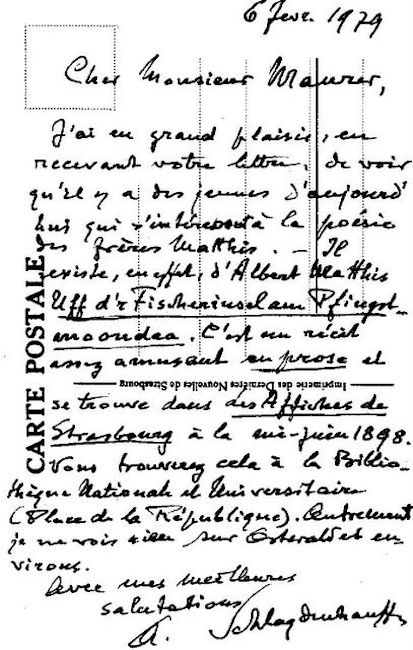 6 févr. 1979
Cher Monsieur Maurer,
J'ai eu grand plaisir, en
recevant votre lettre, de voir
qu'il y a des jeunes d'aujourd'
hui qui s'intéressent à la poésie
des frères Matthis. — Il
existe, en effet, d'Albert Matthis
Uff d'r Fischerinsel am Pfingst-
moondaa. C'est un récit
assez amusant en prose et
se trouve dans les Affiches de
Strasbourg à la mi-juin 1898.
Vous trouverez cela à la Biblio-
thèque Nationale et Universitaire
(Place de la République). Autrement
je ne vois rien sur Ostwald et en-
virons.
Avec mes meilleures
salutations
A. Schlagdenhauffen
CARTE POSTALE
Imprimerie des Dernières Nouvelles de Strasbourg